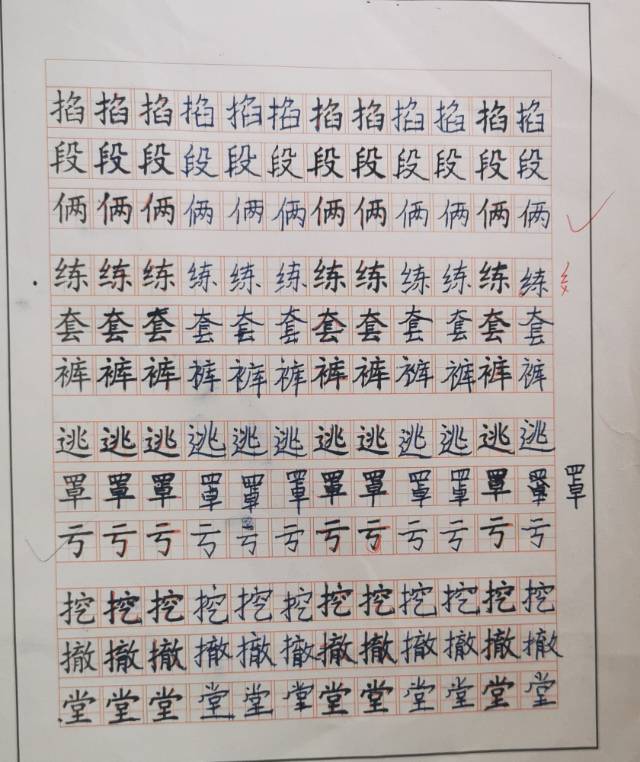 掐掐掐掐掐掐掐掐掐掐掐掐
段段段段段段段段段段段段
俩俩俩俩俩俩俩俩俩俩俩俩
练练练练练练练练练练练练 纟
套套套套套套套套套套套套
裤裤裤裤裤裤裤裤裤裤裤裤
逃逃逃逃逃逃逃逃逃逃逃逃
罩罩罩罩罩罩罩罩罩罩罩罩 罩
亏亏亏亏亏亏亏亏亏亏亏亏
挖挖挖挖挖挖挖挖挖挖挖挖
撤撤撤撤撤撤撤撤撤撤撤撤
堂堂堂堂堂堂堂堂堂堂堂堂